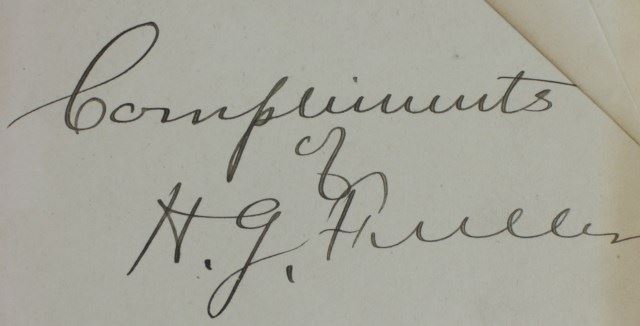 Compliments
of
H. G. Fuller